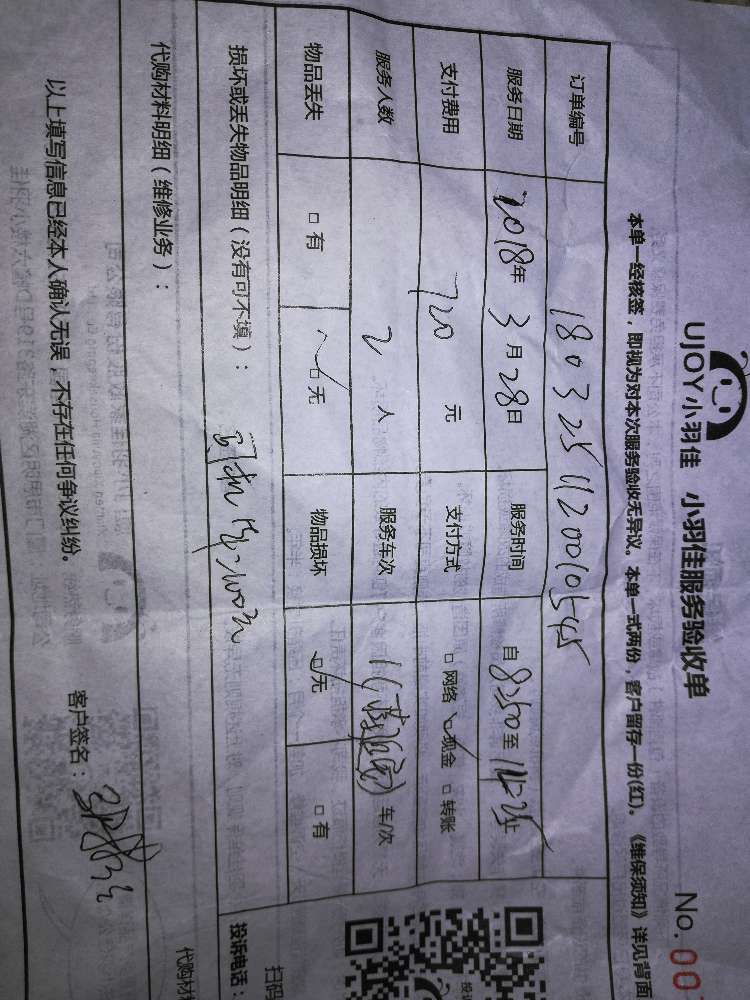 UJOY小羽佳 小羽佳服务验收单 No.00
本单一经核签，即视为对本次服务验收无异议。本单一式两份，客户留存一份(红)。《维保须知》详见背面
订单编号 1803251120010545
服务日期 2018年3月28日 服务时间 自8:50至
支付费用 720元 支付方式 □网络 ☑现金 □转账
服务人数 2人 服务车次 车/次
物品丢失 □有 ☑无 物品损坏 ☑无 □有
损坏或丢失物品明细（没有可不填）：
投诉电话：
扫码
代购材料明细（维修业务）：
代购材
以上填写信息已经本人确认无误，不存在任何争议纠纷。 客户签名：